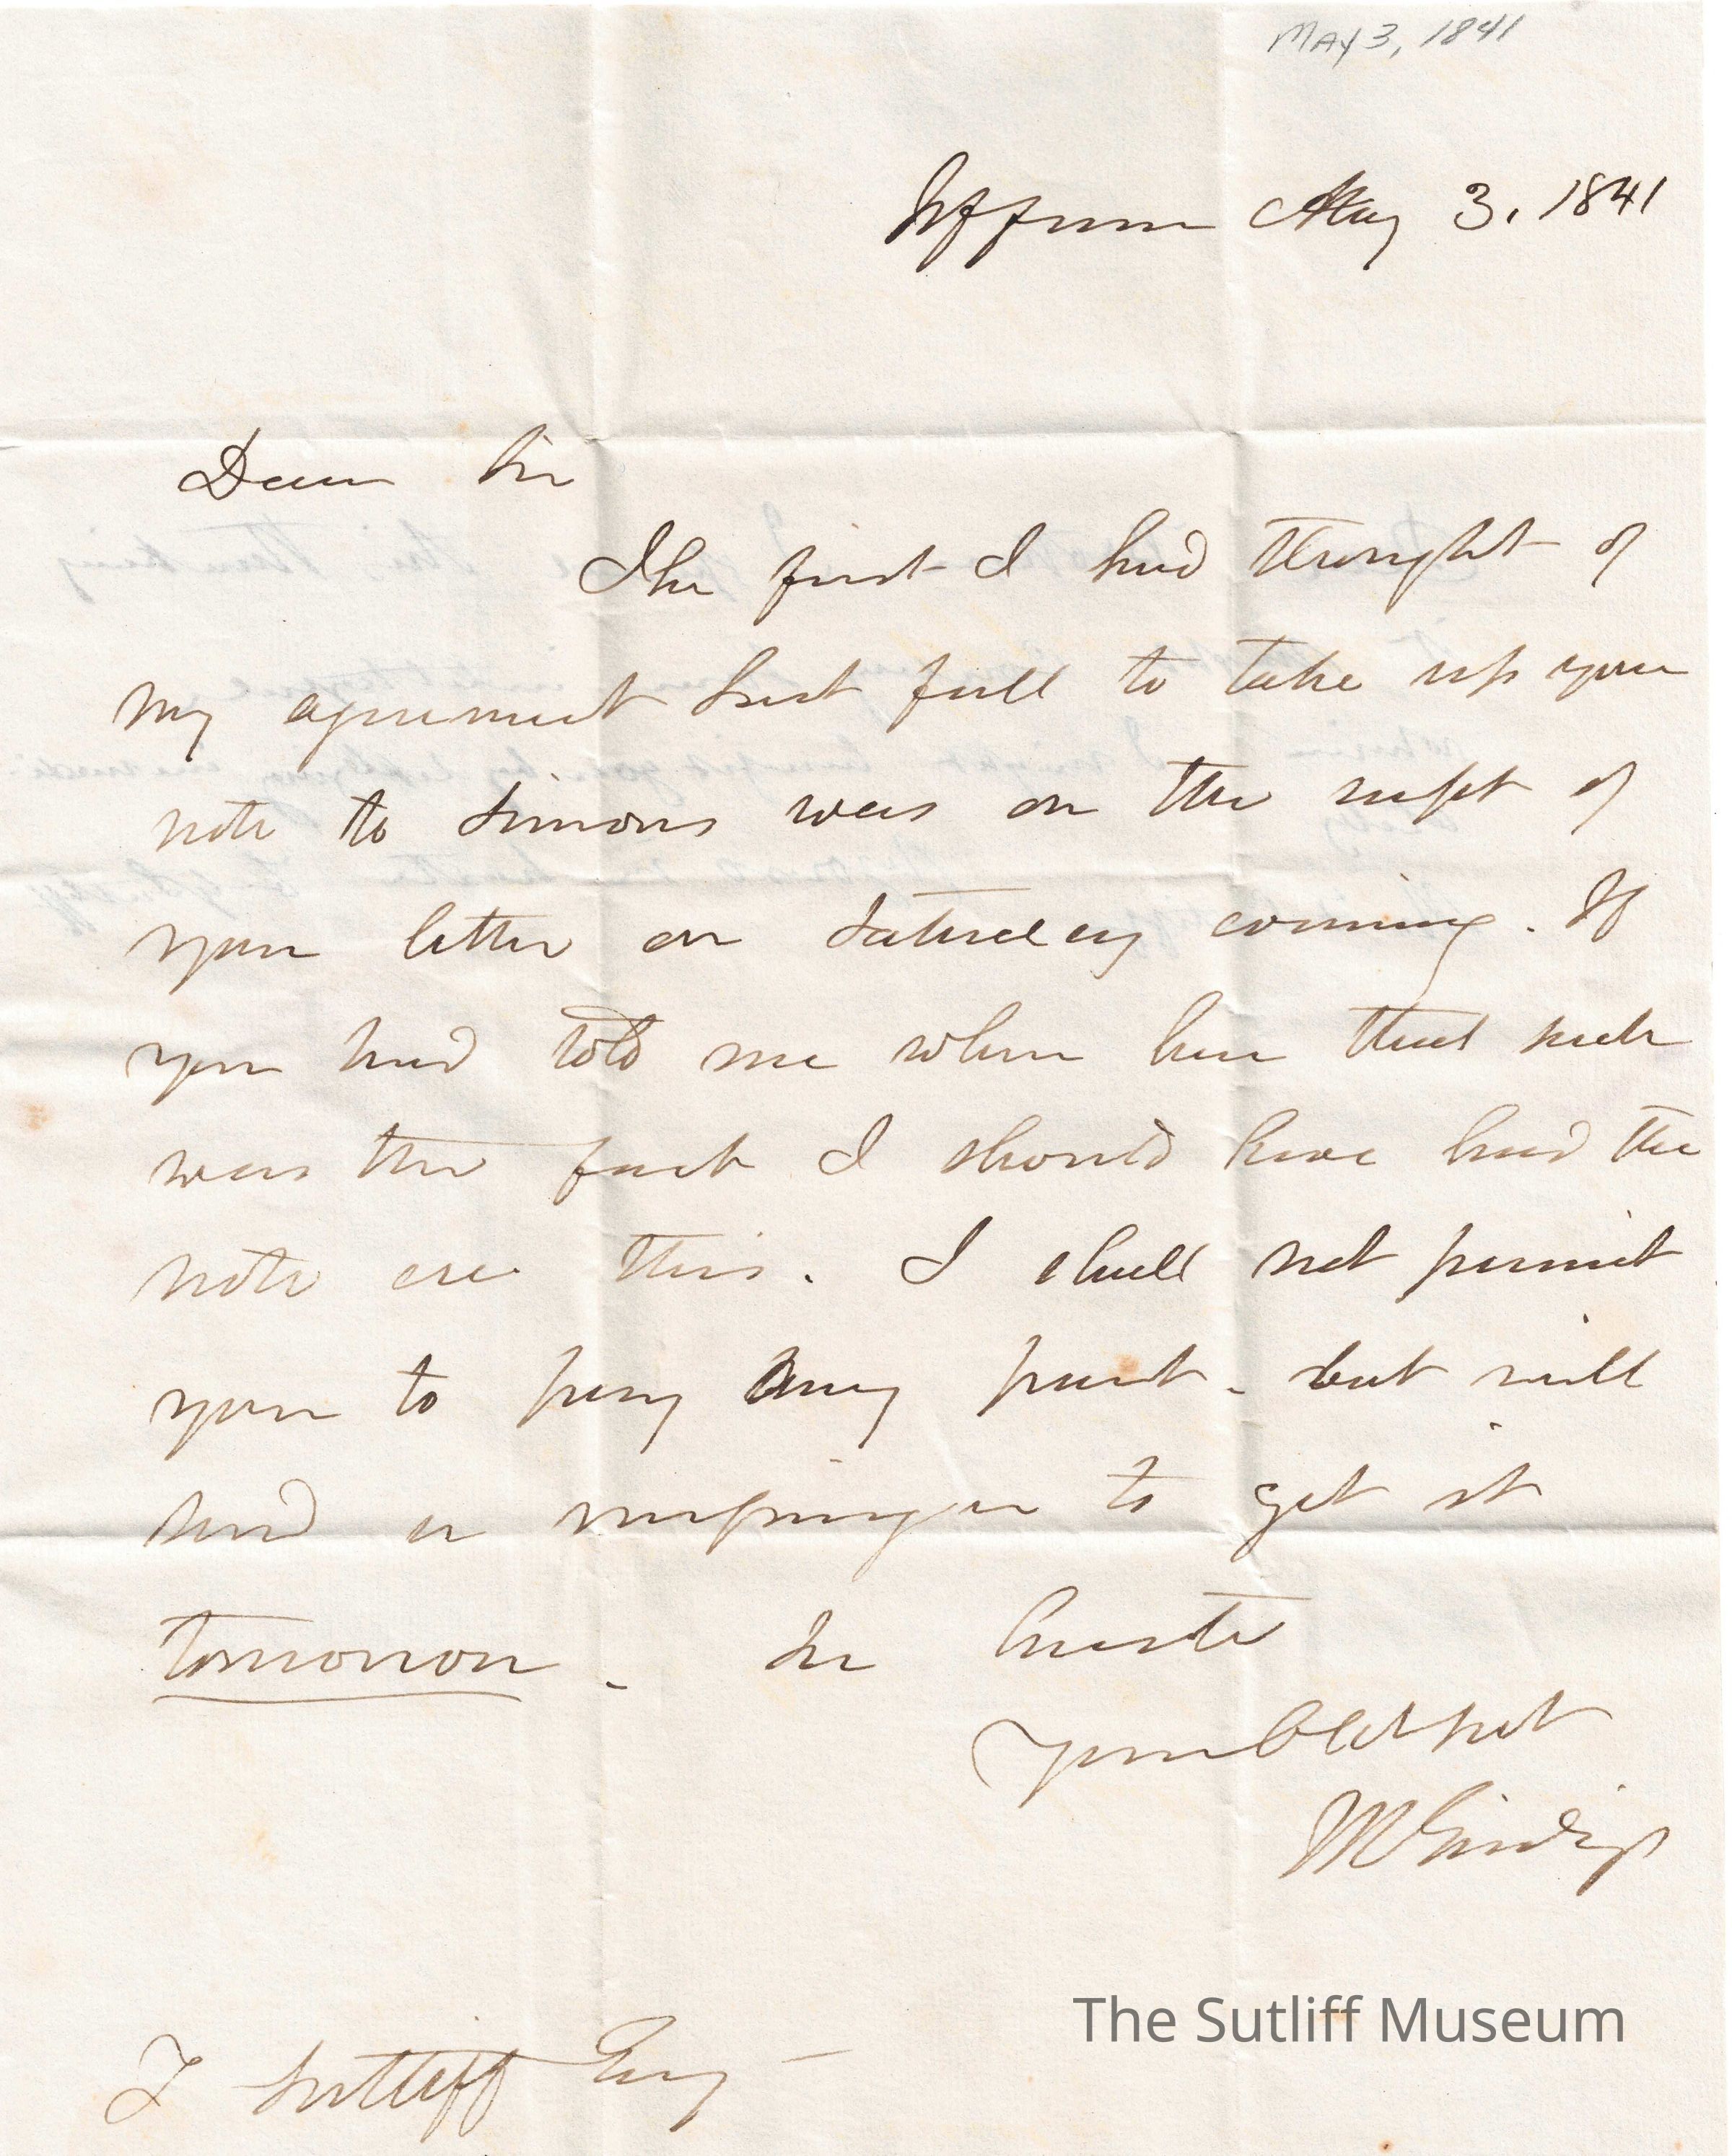 MAY 3, 1841
Jefferson May 3. 1841
Dear Sir
The first I had thought of
my agreement last fall to take up your
note to Simons was on the recpt of
your letter on Saturday evening. If
you had told me when here that such
was the fact I should have had the
note ere this. I shall not permit
you to pay any part - but will
send a messenger to get it
tomorrow - In haste
Your Obt
The Sutliff Museum
L Sutliff Esq -